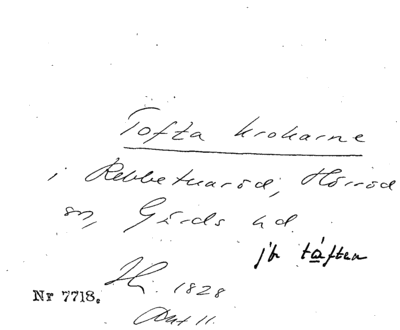 Tofta krokarne
i Rebbetuaröd, Hörröd
sn, Gärds hd
jfr tåften
Nr 7718.
1828
Akt 11.